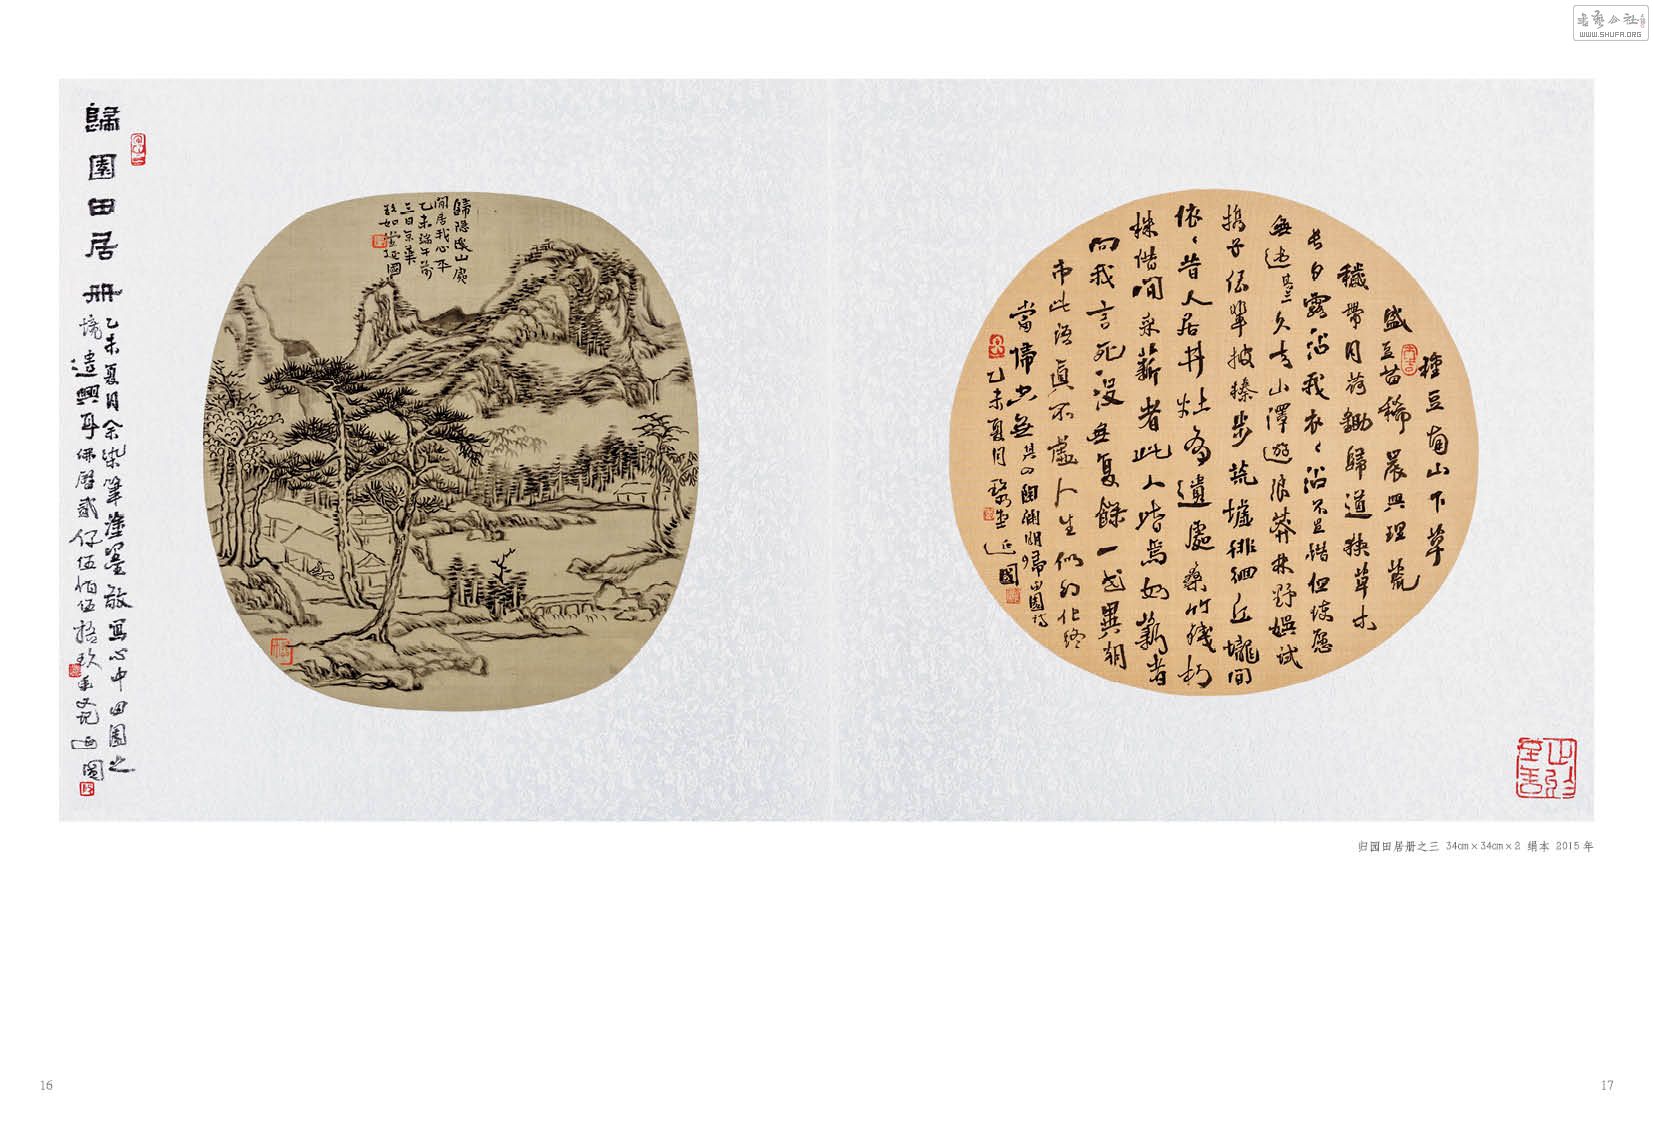 書藝公社
WWW.SHUFA.ORG
歸園田居冊
乙未夏月余染筆塗墨敬寫心中田園之
境遣興耳佛曆貳仟伍佰伍拾玖年又記延國
歸隱深山處
閒居我心平
乙未端午前
三日京華
如堂延國
種豆南山下草
盛豆苗稀晨興理荒
穢帶月荷鋤歸道狹草木
長夕露沾我衣〻沾不足惜但使願
無違其三久去山澤遊浪莽林野娛試
攜子侄輩披榛步荒墟徘徊丘壠間
依〻昔人居井灶有遺處桑竹殘朽
株借問采薪者此人皆焉如薪者
向我言死沒無復餘一世異朝
市此語真不虛人生似幻化終
當歸空無其四陶淵明歸田園詩
乙未夏月堂延國
归园田居册之三 34cm×34cm×2 绢本 2015年
16
17